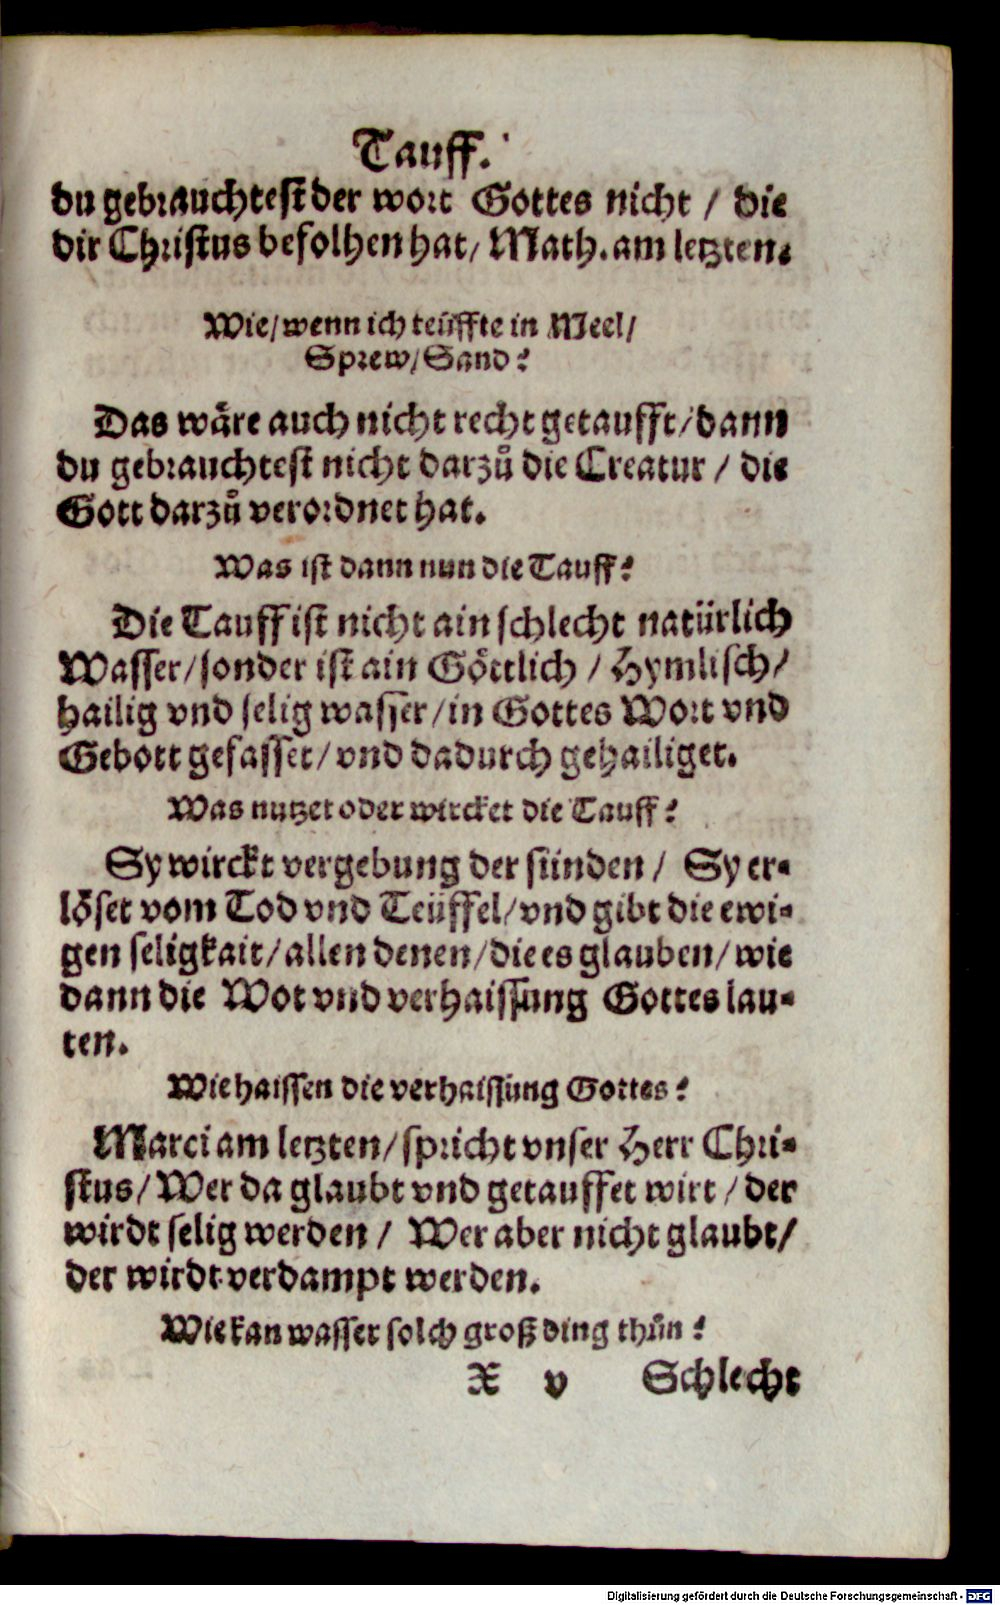 Tauff.
du gebrauchtest der wort Gottes nicht / die
dir Christus befolhen hat / Math. am letzten.
Wie / wenn ich teüffte in Meel /
Sprew / Sand?
Das wåre auch nicht recht getaufft / dann
du gebrauchtest nicht darzů die Creatur / die
Gott darzů verordnet hat.
Was ist dann nun die Tauff?
Die Tauff ist nicht ain schlecht natürlich
Wasser / sonder ist ain Göttlich / Hymlisch /
hailig vnd selig wasser / in Gottes Wort vnd
Gebott gefasset / vnd dadurch gehailiget.
Was nutzet oder wircket die Tauff?
Sy wirckt vergebung der sünden / Sy er-
löset vom Tod vnd Teüffel / vnd gibt die ewi-
gen seligkait / allen denen / die es glauben / wie
dann die Wot vnd verhaissung Gottes lau-
ten.
Wie haissen die verhaissung Gottes?
Marci am letzten / spricht vnser Herr Chri-
stus / Wer da glaubt vnd getauffet wirt / der
wirdt selig werden / Wer aber nicht glaubt /
der wirdt verdampt werden.
Wie kan wasser solch groß ding thůn?
X v Schlecht
Digitalisierung gefördert durch die Deutsche Forschungsgemeinschaft - DFG